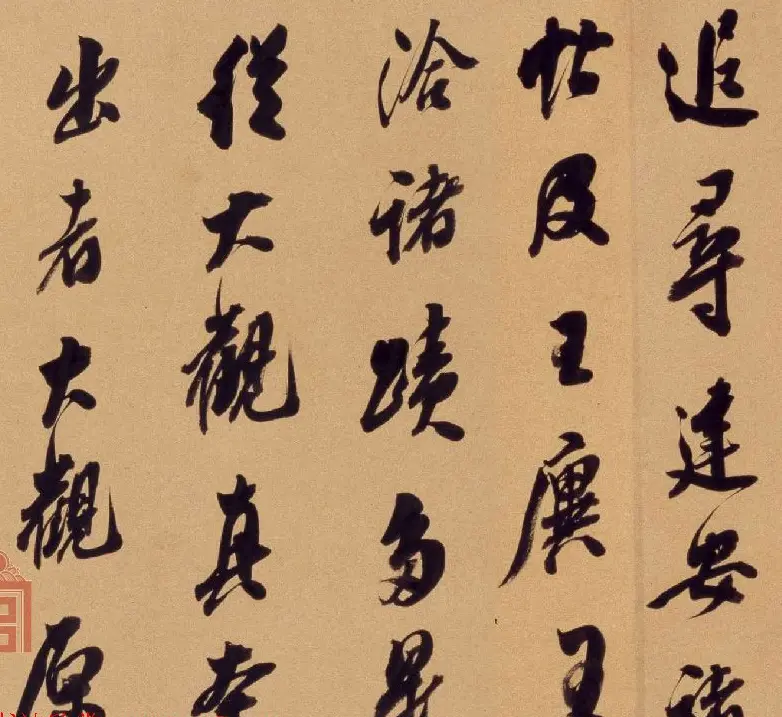 追尋建安諸
帖及王廙王
洽諸蹟多是
從大觀真本
出者大觀原